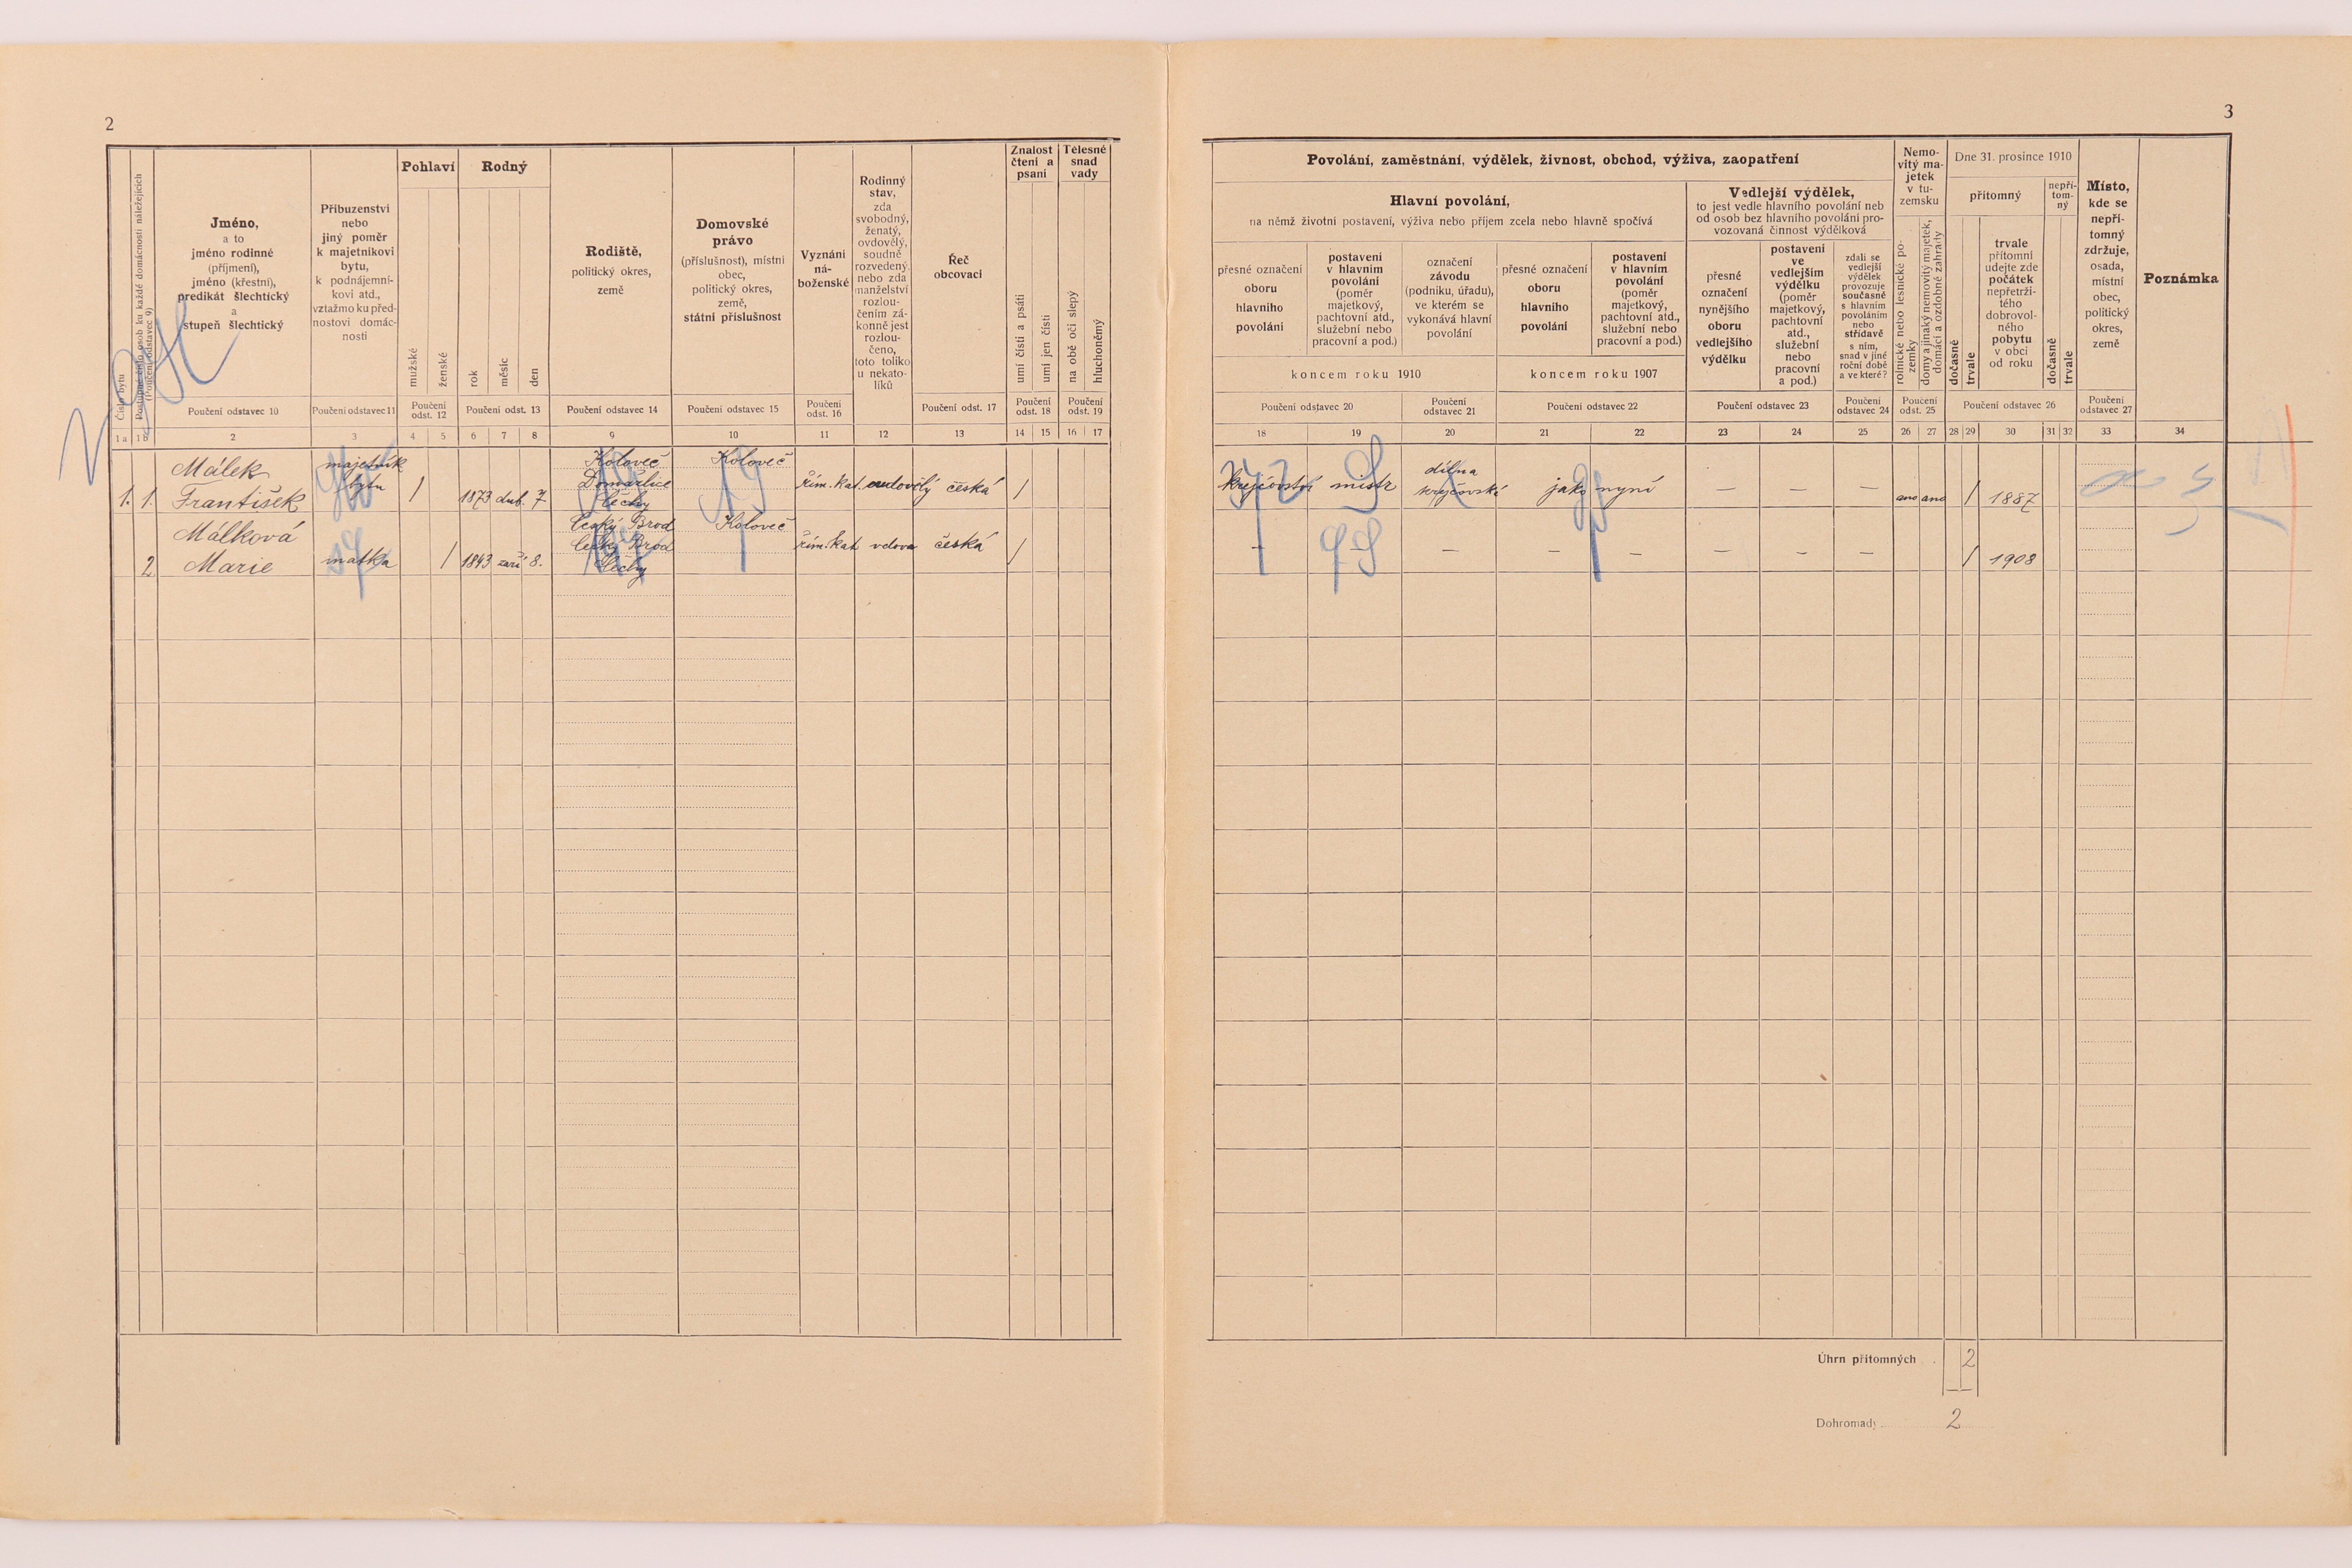 2
3
Číslo bytu
Postupné číslo osob ku každé domácnosti náležejících
(Poučení odstavec 9)
Jméno,
a to
jméno rodinné
(příjmení),
jméno (křestní),
predikát šlechtický
a
stupeň šlechtický
Poučení odstavec 10
Příbuzenství
nebo
jiný poměr
k majetníkovi
bytu,
k podnájemní-
kovi atd.,
vztažmo ku před-
nostovi domác-
nosti
Poučení odstavec 11
Pohlaví
mužské
ženské
Poučení
odst. 12
Rodný
rok
měsíc
den
Poučení odst. 13
Rodiště,
politický okres,
země
Poučení odstavec 14
Domovské
právo
(příslušnost), místní
obec,
politický okres,
země,
státní příslušnost
Poučení odstavec 15
Vyznání
ná-
boženské
Poučení
odst. 16
Rodinný
stav,
zda
svobodný,
ženatý,
ovdovělý,
soudně
rozvedený,
nebo zda
manželství
rozlou-
čením zá-
konně jest
rozlou-
čeno,
toto toliko
u nekato-
líků
Řeč
obcovací
Poučení odst. 17
Znalost
čtení a
psaní
umí čísti a psáti
umí jen čísti
Poučení
odst. 18
Tělesné
snad
vady
na obě oči slepý
hluchoněmý
Poučení
odst. 19
1a 1b 2 3 4 5 6 7 8 9 10 11 12 13 14 15 16 17
Málek majetník Koloveč Koloveč
bytu Domažlice
1. 1. František / 1873 dub. 7. Čechy řím. kat. ovdovělý česká /
Málková Český Brod Koloveč
Český Brod
2 Marie matka / 1843 září 8. Čechy řím. kat. vdova česká /
Povolání, zaměstnání, výdělek, živnost, obchod, výživa, zaopatření
Hlavní povolání,
na němž životní postavení, výživa nebo příjem zcela nebo hlavně spočívá
přesné označení
oboru
hlavního
povolání
postavení
v hlavním
povolání
(poměr
majetkový,
pachtovní atd.,
služební nebo
pracovní a pod.)
označení
závodu
(podniku, úřadu),
ve kterém se
vykonává hlavní
povolání
koncem roku 1910
Poučení odstavec 20
Poučení
odstavec 21
přesné označení
oboru
hlavního
povolání
postavení
v hlavním
povolání
(poměr
majetkový,
pachtovní atd.,
služební nebo
pracovní a pod.)
koncem roku 1907
Poučení odstavec 22
Vedlejší výdělek,
to jest vedle hlavního povolání neb
od osob bez hlavního povolání pro-
vozovaná činnost výdělková
přesné
označení
nynějšího
oboru
vedlejšího
výdělku
postavení
ve
vedlejším
výdělku
(poměr
majetkový,
pachtovní
atd.,
služební
nebo
pracovní
a pod.)
Poučení odstavec 23
zdali se
vedlejší
výdělek
provozuje
současně
s hlavním
povoláním
nebo
střídavě
s ním,
snad v jiné
roční době
a ve které?
Poučení
odstavec 24
Nemo-
vitý ma-
jetek
v tu-
zemsku
rolnické nebo lesnické po-
zemky
domy a jinaký nemovitý majetek,
domácí a ozdobné zahrady
Poučení
odst. 25
Dne 31. prosince 1910
přítomný
dočasně
trvale
trvale
přítomní
udejte zde
počátek
nepřetrži-
tého
dobrovol-
ného
pobytu
v obci
od roku
nepří-
tom-
ný
dočasně
trvale
Poučení odstavec 26
Místo,
kde se
nepří-
tomný
zdržuje,
osada,
místní
obec,
politický
okres,
země
Poučení
odstavec 27
Poznámka
18 19 20 21 22 23 24 25 26 27 28 29 30 31 32 33 34
krejčovství mistr dílna
krejčovská jako nyní — — — ano ano / 1887
— — — — — — — — / 1908
Úhrn přítomných . . 2
Dohromady 2